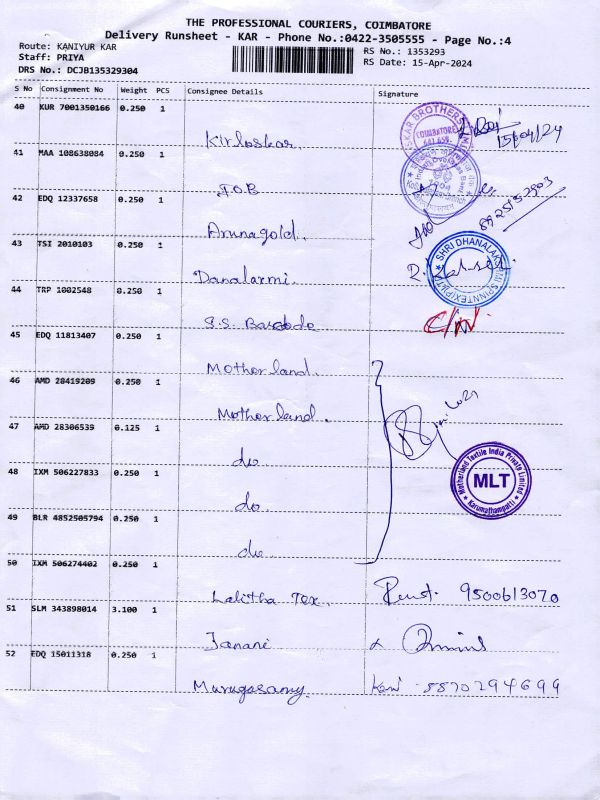 THE PROFESSIONAL COURIERS, COIMBATORE
Delivery Runsheet - KAR - Phone No.:0422-3505555 - Page No.:4
Route: KANIYUR KAR
Staff: PRIYA
DRS No.: DCJB135329304
RS No.: 1353293
RS Date: 15-Apr-2024
S No Consignment No Weight PCS Consignee Details Signature
40 KUR 7001350166 0.250 1
Kirloskar
15/04/24
COIMBATORE
641 659.
41 MAA 108638084 0.250 1
I.O.B
42 EDQ 12337658 0.250 1
Arunagold.
8925152903
43 TSI 2010103 0.250 1
Danalaxmi.
SHRI DHANALAKSHMI SPINTEX (P) LTD
44 TRP 1002548 0.250 1
S.S.
45 EDQ 11813407 0.250 1
Motherland.
46 AMD 28419209 0.250 1
Motherland.
47 AMD 28306539 0.125 1
do
48 IXM 506227833 0.250 1
do.
Motherland Textile India Private Limited
MLT
Karumathampatti
49 BLR 4852505794 0.250 1
do
50 IXM 506274402 0.250 1
Lalitha Tex. 9500613070
51 SLM 343898014 3.100 1
Janani
52 EDQ 15011318 0.250 1
Murugasamy. 8870294699